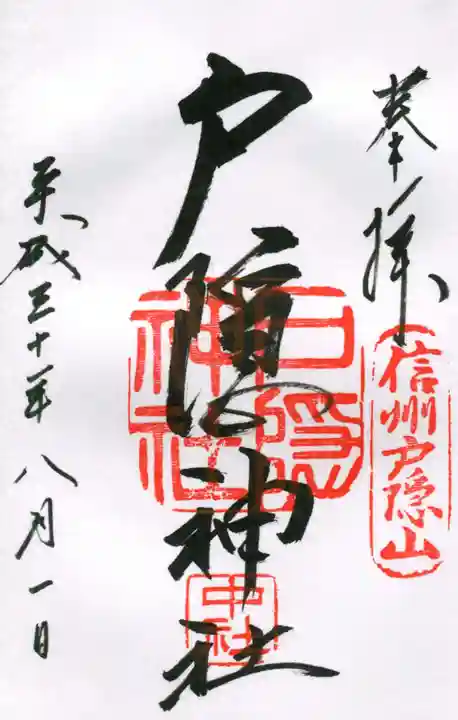 奉拝
信州戸隠山
戸隠神社
戸隠
神社
中社
平成三十年八月一日